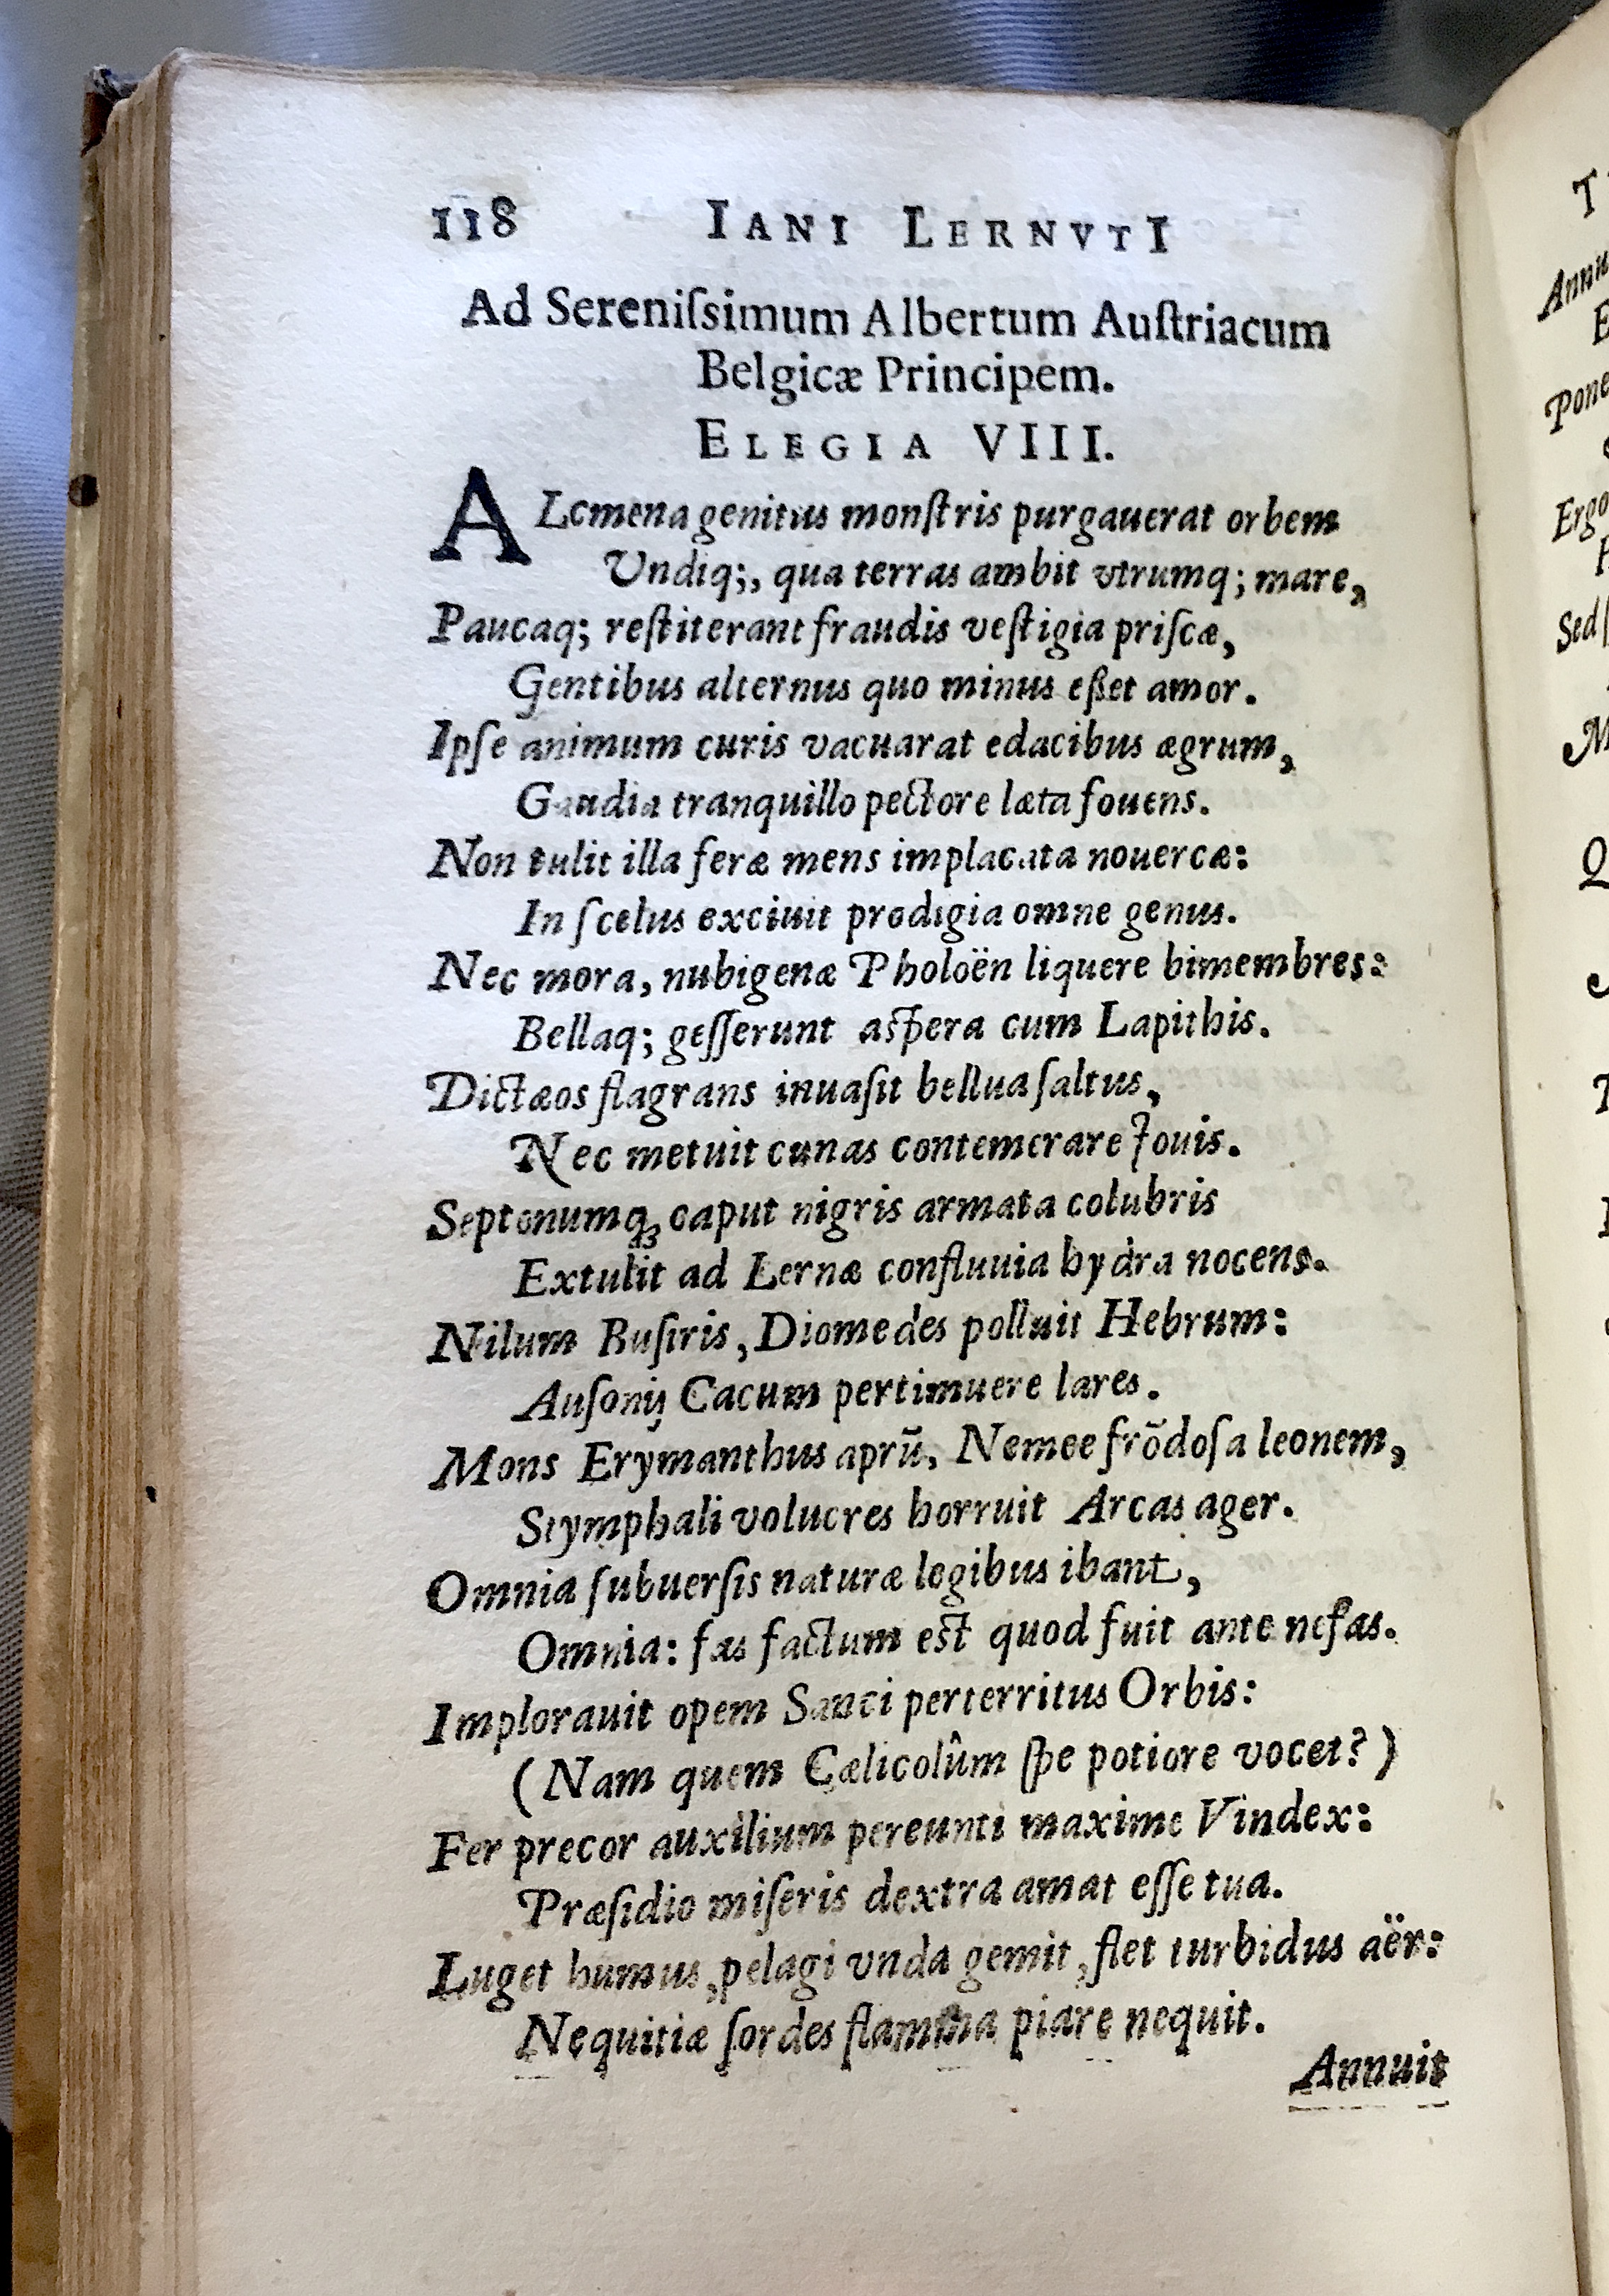 118 IANI LERNVTI
Ad Sereniſsimum Albertum Auſtriacum
Belgicæ Principem.
ELEGIA VIII.
ALcmena genitus monſtris purgauerat orbem
Undiq;, qua terras ambit vtrumq; mare,
Paucaq; reſtiterant fraudis veſtigia priſcæ,
Gentibus alternus quo minus eßet amor.
Ipſe animum curis vacuarat edacibus ægrum,
Gaudia tranquillo pectore læta fouens.
Non tulit illa feræ mens implacata nouercæ:
In ſcelus exciuit prodigia omne genus.
Nec mora, nubigenæ Pholoën liquere bimembres:
Bellaq; geſſerunt aſpera cum Lapithis.
Dictæos flagrans inuaſit bellua ſaltus,
Nec metuit cunas contemerare Jouis.
Septenumq; caput nigris armata colubris
Extulit ad Lernæ confluuia hydra nocens.
Nilum Buſiris, Diomedes polluit Hebrum:
Auſonij Cacum pertimuere lares.
Mons Erymanthus aprũ, Nemee frõdoſa leonem,
Stymphali volucres horruit Arcas ager.
Omnia ſubuerſis naturæ legibus ibant,
Omnia: fas factum eſt quod fuit ante nefas.
Implorauit opem Sanci perterritus Orbis:
(Nam quem Cælicolûm ſpe potiore vocet?)
Fer precor auxilium pereunti maxime Vindex:
Præſidio miſeris dextra amat eſſe tua.
Luget humus, pelagi vnda gemit, flet turbidus aër:
Nequitiæ ſordes flamma piare nequit.
Annuit